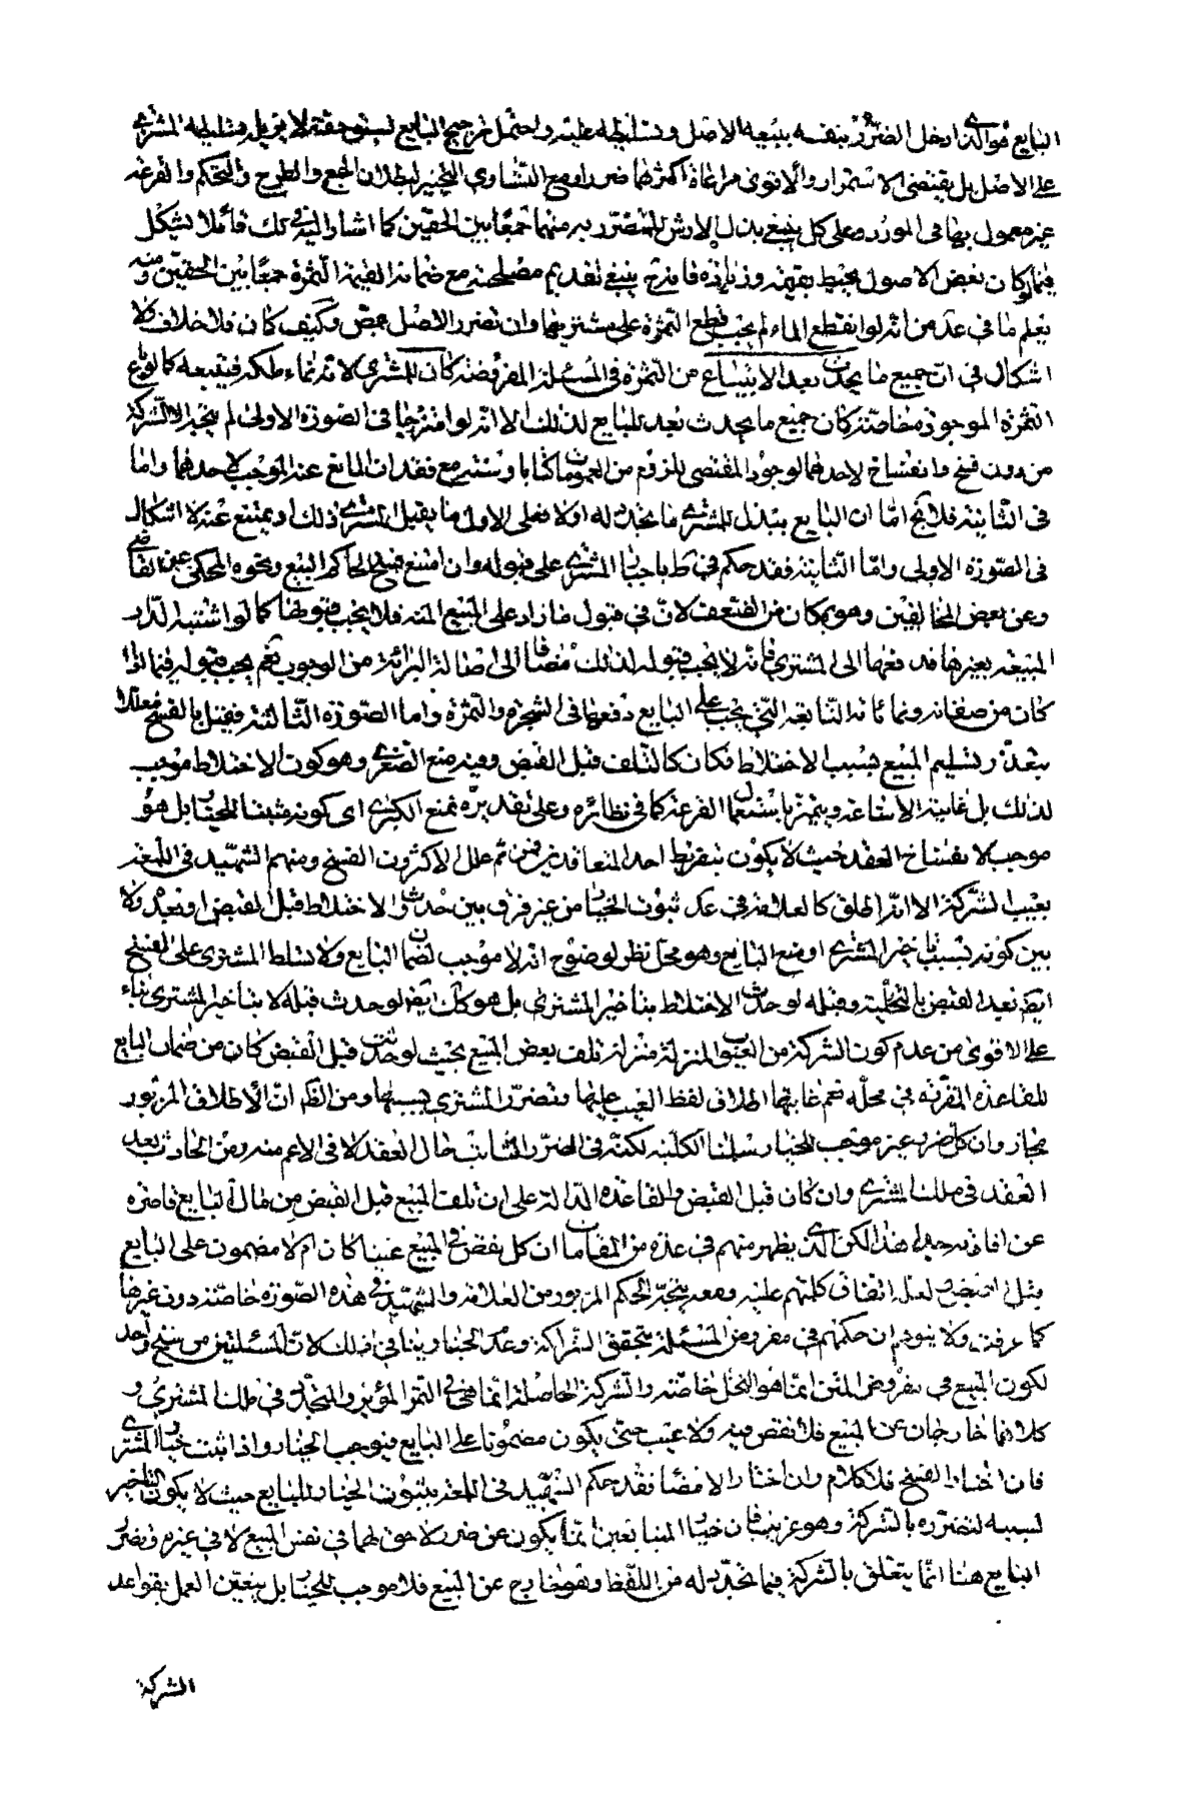 البايع هو الذى ادخل الضرر بنفسه ببيعه الاصل وتسليطه عليه واحتمل ترجيح البايع لسبق حقه لا يزيل مسليطه المشترى
على الاصل بل يقتضى الاستمرار والاقوى مراعاة اكثرهما ضررا ومع التساوى التخيير لبطلان الجمع والطرح والتحكم والقرعة
غير معمول بها فى المورد وعلى كل ينبغى بذل الارش للمتضرر به منهما جمعا بين الحقين كما اشار اليه فى لك قائلا يشكل
فيما لو كان نقص الاصول يحيط بقيمة وزيادة فانه ح ينبغى تقديم مصلحته مع ضمانه القيمة الثمرة جمعا بين الحقين ومنه
يعلم ما فى عد من انه لو انقطع الماء لم يجب قطع الثمرة على مشتريها وان تضرر الاصل بمص وكيف كان فلا خلاف ولا
اشكال فى ان جميع ما يحدث بعد الابتياع من الثمرة فى المسئلة المفروضة كان للمشترى لانه نماء ملكه فيتبعه كما لو باع
الثمرة الموجودة خاصة كان جميع ما يحدث بعد للبايع لذلك الا انه لو امتزجا فى الصورة الاولى لم يتجه الا الشركة
من دون فسخ وانفساخ لاحدهما لوجود المقتضى للزوم من العمومات كتابا وسنة مع فقدان المانع عنه الموجب لاحدهما واما
فى الثانية فلا يخ اما ان البايع يبذل للمشترى ما يتجدد له اولا فعلى الاول اما يقبل المشترى ذلك او يمتنع عنه لا اشكال
فى الصورة الاولى واما الثانية فقد حكم فى ط باجبار المشترى على قبوله وان امتنع فسخ الحاكم البيع ونحوه المحكى عن القاضى
وعن بعض المخالفين وهو بمكان من الضعف لان فى قبول ما زاد على المبيع المنة فلا يجب قبولها كما لو اشتبه الدار
المبيعة بغيرها فدفعها الى المشترى فانه لا يجب قبوله لذلك مضافا الى اصالة البرائة من الوجوب نعم يجب قبوله فيما اذا
كان من صفاته ونمائاته التابعة التى يجب على البايع دفعها فى الشجرة والثمرة واما الصورة الثالثة فقيل بالفسخ معللا
بتعذر تسليم المبيع بسبب الاختلاط فكان كالتلف قبل القبض وفيه منع الصغرى وهو كون الاختلاط موجب
لذلك بل غايته الاشاعة ويتميز باستعمال القرعة كما فى نظائره وعلى تقديره نمنع الكبرى اى كونه مثبتا للخيار بل هو
موجب لانفساخ العقد حيث لا يكون بتفريط احد المتعاقدين ثم علل الاكثرون الفسخ ومنهم الشهيد فى اللمعة
بعيب الشركة الا انه اطلق كالعلامة فى عد ثبوت الخيار من غير فرق بين حدوث الاختلاط قبل القبض او بعده ولا
بين كونه بسبب تاخير المشترى او منع البايع وهو محل نظر لوضوح انه لا موجب لضمان البايع ولا تسلط المشترى على الفسخ
ايضا بعد القبض بالتخلية وقبله لو حدث الاختلاط بتاخير المشترى بل هو كك ايضا لو حدث قبله لا بتاخير المشترى بناء
على الاقوى من عدم كون الشركة من العيوب المنزلة منزلة تلف بعض المبيع بحيث لو حدثت قبل القبض كان من ضمان البايع
للقاعدة المقررة فى محله نعم غايتها اطلاق لفظ العيب عليها وتضرر المشترى بسببها ومن الظ ان الاطلاق المزبور
مجاز وان كل ضرر غير موجب للخيار سلمنا الكلية لكنه فى الضرر الثابت حال العقد لا فى الاعم منه ومن الحادث بعد
العقد فى ملك المشترى وان كان قبل القبض والقاعدة الدالة على ان تلف المبيع قبل القبض من مال البايع قاصرة
عن افادة حيار هذا لكن الذى يظهر منهم فى عدة من المقامات ان كل نقص فى المبيع عيبا كان ام لا مضمون على البايع
قبل القبض لعل اتفاق كلمتهم عليه ومعه يتجه الحكم المزبور من العلامة والشهيد فى هذه الصورة خاصة دون غيرها
كما عرفت ولا يتوهم ان حكمهم فى مفروض المسئلة بتحقق الشراكة وعدم الخيار ينافى ذلك لان المسئلتين من سنخ واحد
لكون المبيع فى مفروض المتن انما هو النخل خاصة والشركة الحاصلة انما هى فى الثمر المؤبر والمتجدد فى ملك المشترى و
كلاهما خارجان عن المبيع فلا نقص فيه ولا عيب حتى يكون مضمونا على البايع فيوجب الخيار واذا ثبت خيار المشترى
فان اختار الفسخ فلا كلام وان اختار الامضاء فقد حكم الشهيد فى اللمعة بثبوت الخيار للبايع حيث لا يكون التاخير
بسببه لتضرره بالشركة وهو غريب فان خيار المتبايعين انما يكون عن ضرر لاحق لهما فى نفس المبيع لا فى غيره وضرر
البايع هنا انما يتعلق بالشركة فيما يتجدد له من اللقط وهو خارج عن المبيع فلا موجب للخيار بل يتعين العمل بقواعد
الشركة